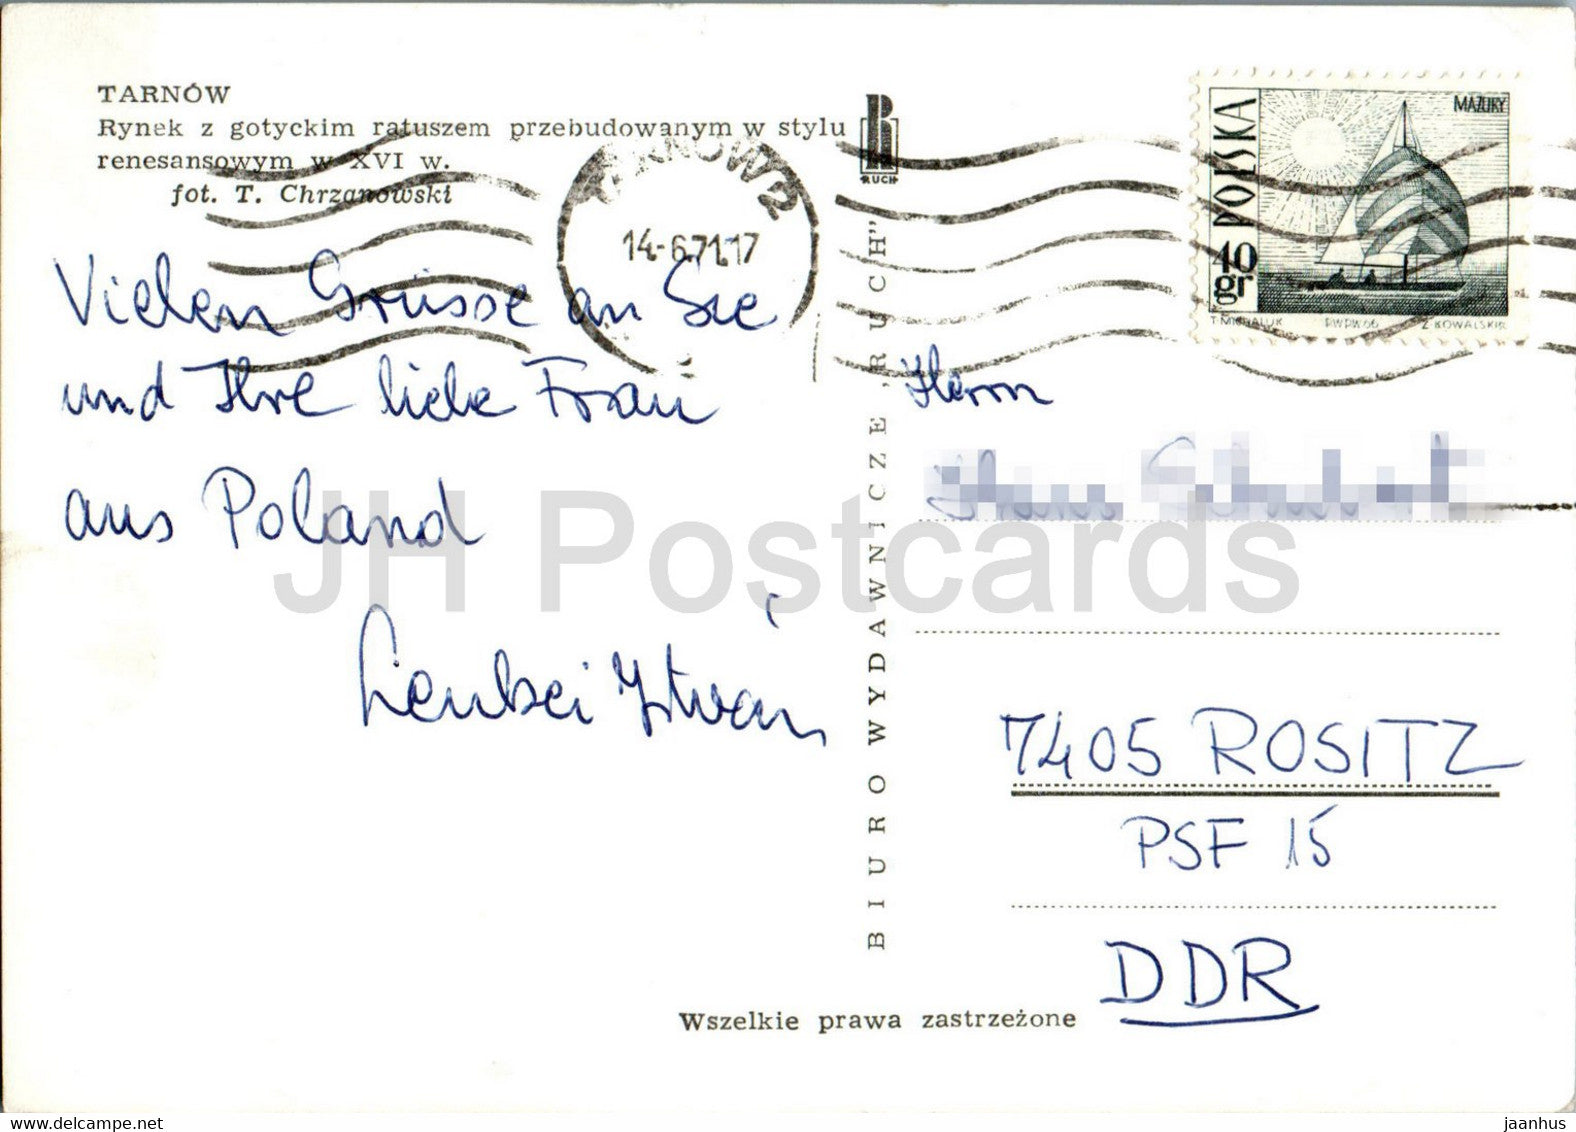 TARNÓW
Rynek z gotyckim ratuszem przebudowanym w stylu
renesansowym w XVI w.
fot. T. Chrzanowski
R
RUCH
TARNÓW 2
14.-6.71.17
POLSKA
MAZURY
40
gr
T. MICHALUK PWPW.66 Z. KOWALSKI R.
Vielen Grüsse an Sie
und Ihre liebe Frau
aus Poland
István
BIURO WYDAWNICZE „RUCH"
Herrn
7405 ROSITZ
PSF 15
DDR
Wszelkie prawa zastrzeżone
JH Postcards
www.delcampe.net
jaanhus